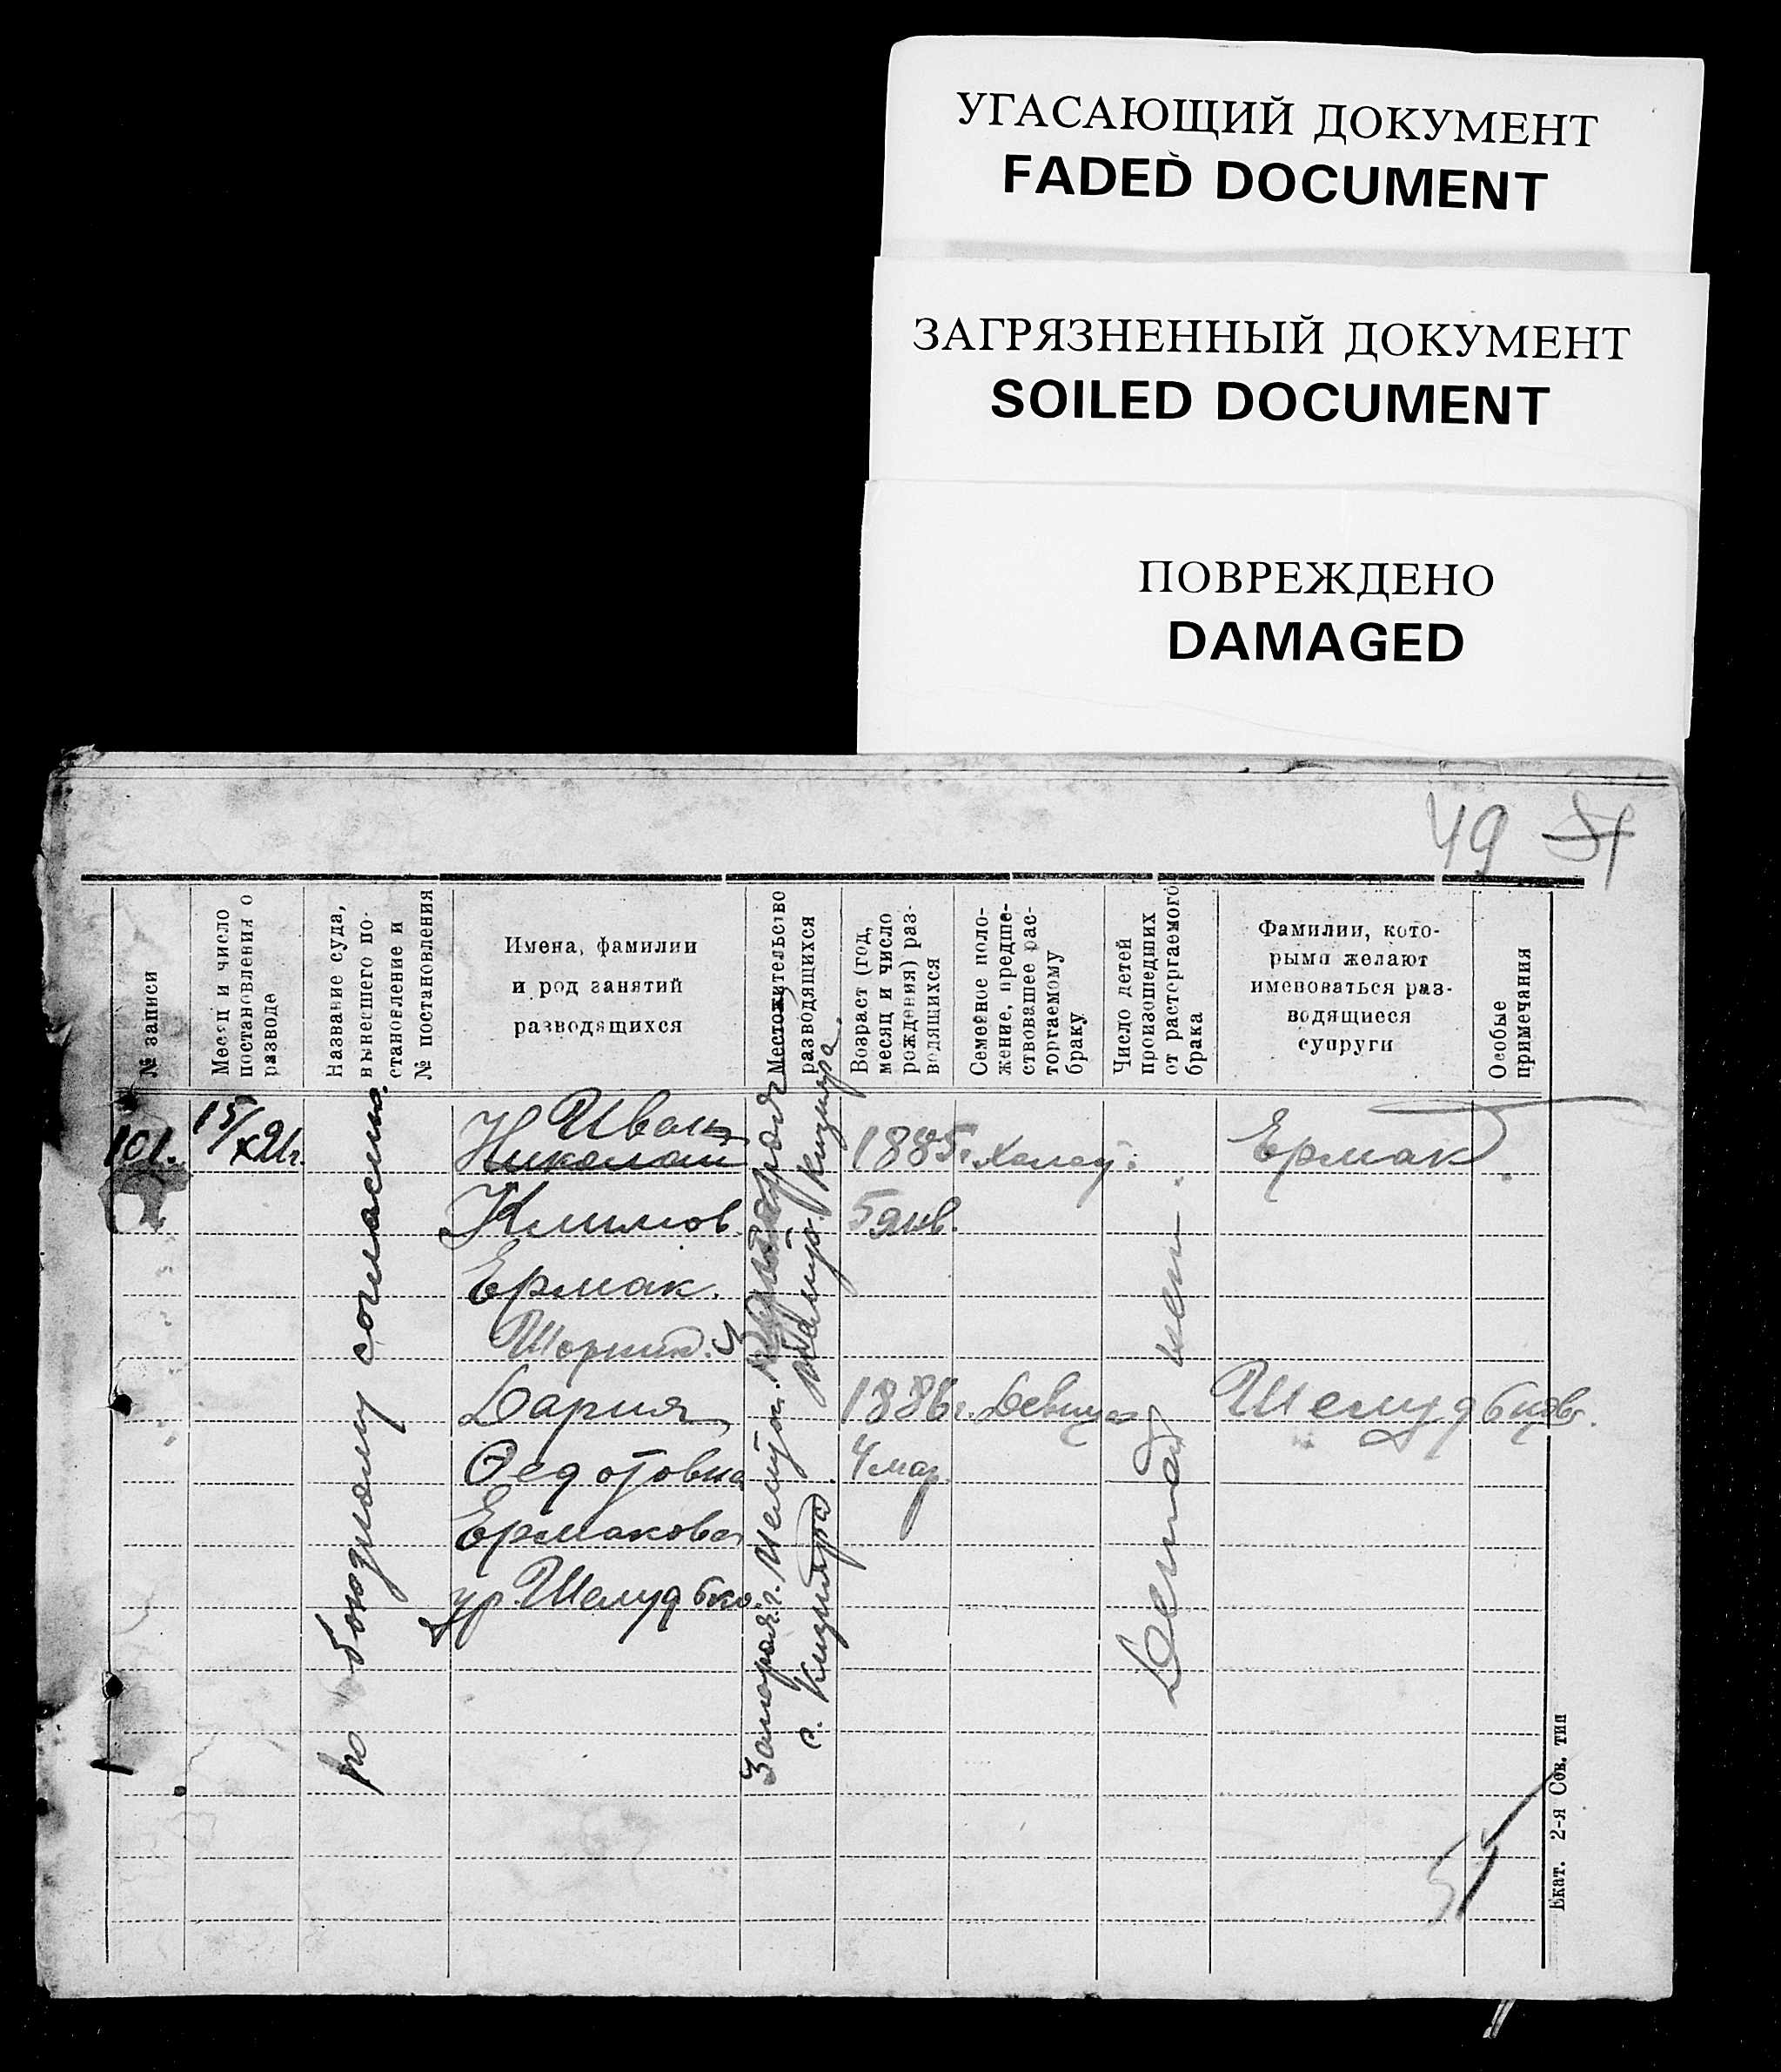 УГАСАЮЩИЙ ДОКУМЕНТ
FADED DOCUMENT
ЗАГРЯЗНЕННЫЙ ДОКУМЕНТ
SOILED DOCUMENT
ПОВРЕЖДЕНО
DAMAGED
49 51
№ записи
Месяц и число
постановления о
разводе
Название суда,
вынесшего по-
становление и
№ постановления
Имена, фамилии
и род занятий
разводящихся
Местожительство
разводящихся
Возраст (год,
месяц и число
рождения) раз-
водящихся
Семейное поло-
жение, предше-
ствовавшее рас-
торгаемому
браку
Число детей
происшедших
от расторгаемого
брака
Фамилии, кото-
рыми желают
именоваться раз-
водящиеся
супруги
Особые
примечания
101.
15/X 21г.
по обоюдному согласию.
Иван
Николаи
Климов.
Ермак.
Дария
Федотовна
Ермакова
ур. Шелудько.
с. Кишира
1885г.
5 янв.
1886г.
4 мар.
Холост
Девица
Бездетной нет.
Ермак
Шелудькова.
Екат. 2-я Сов. тип